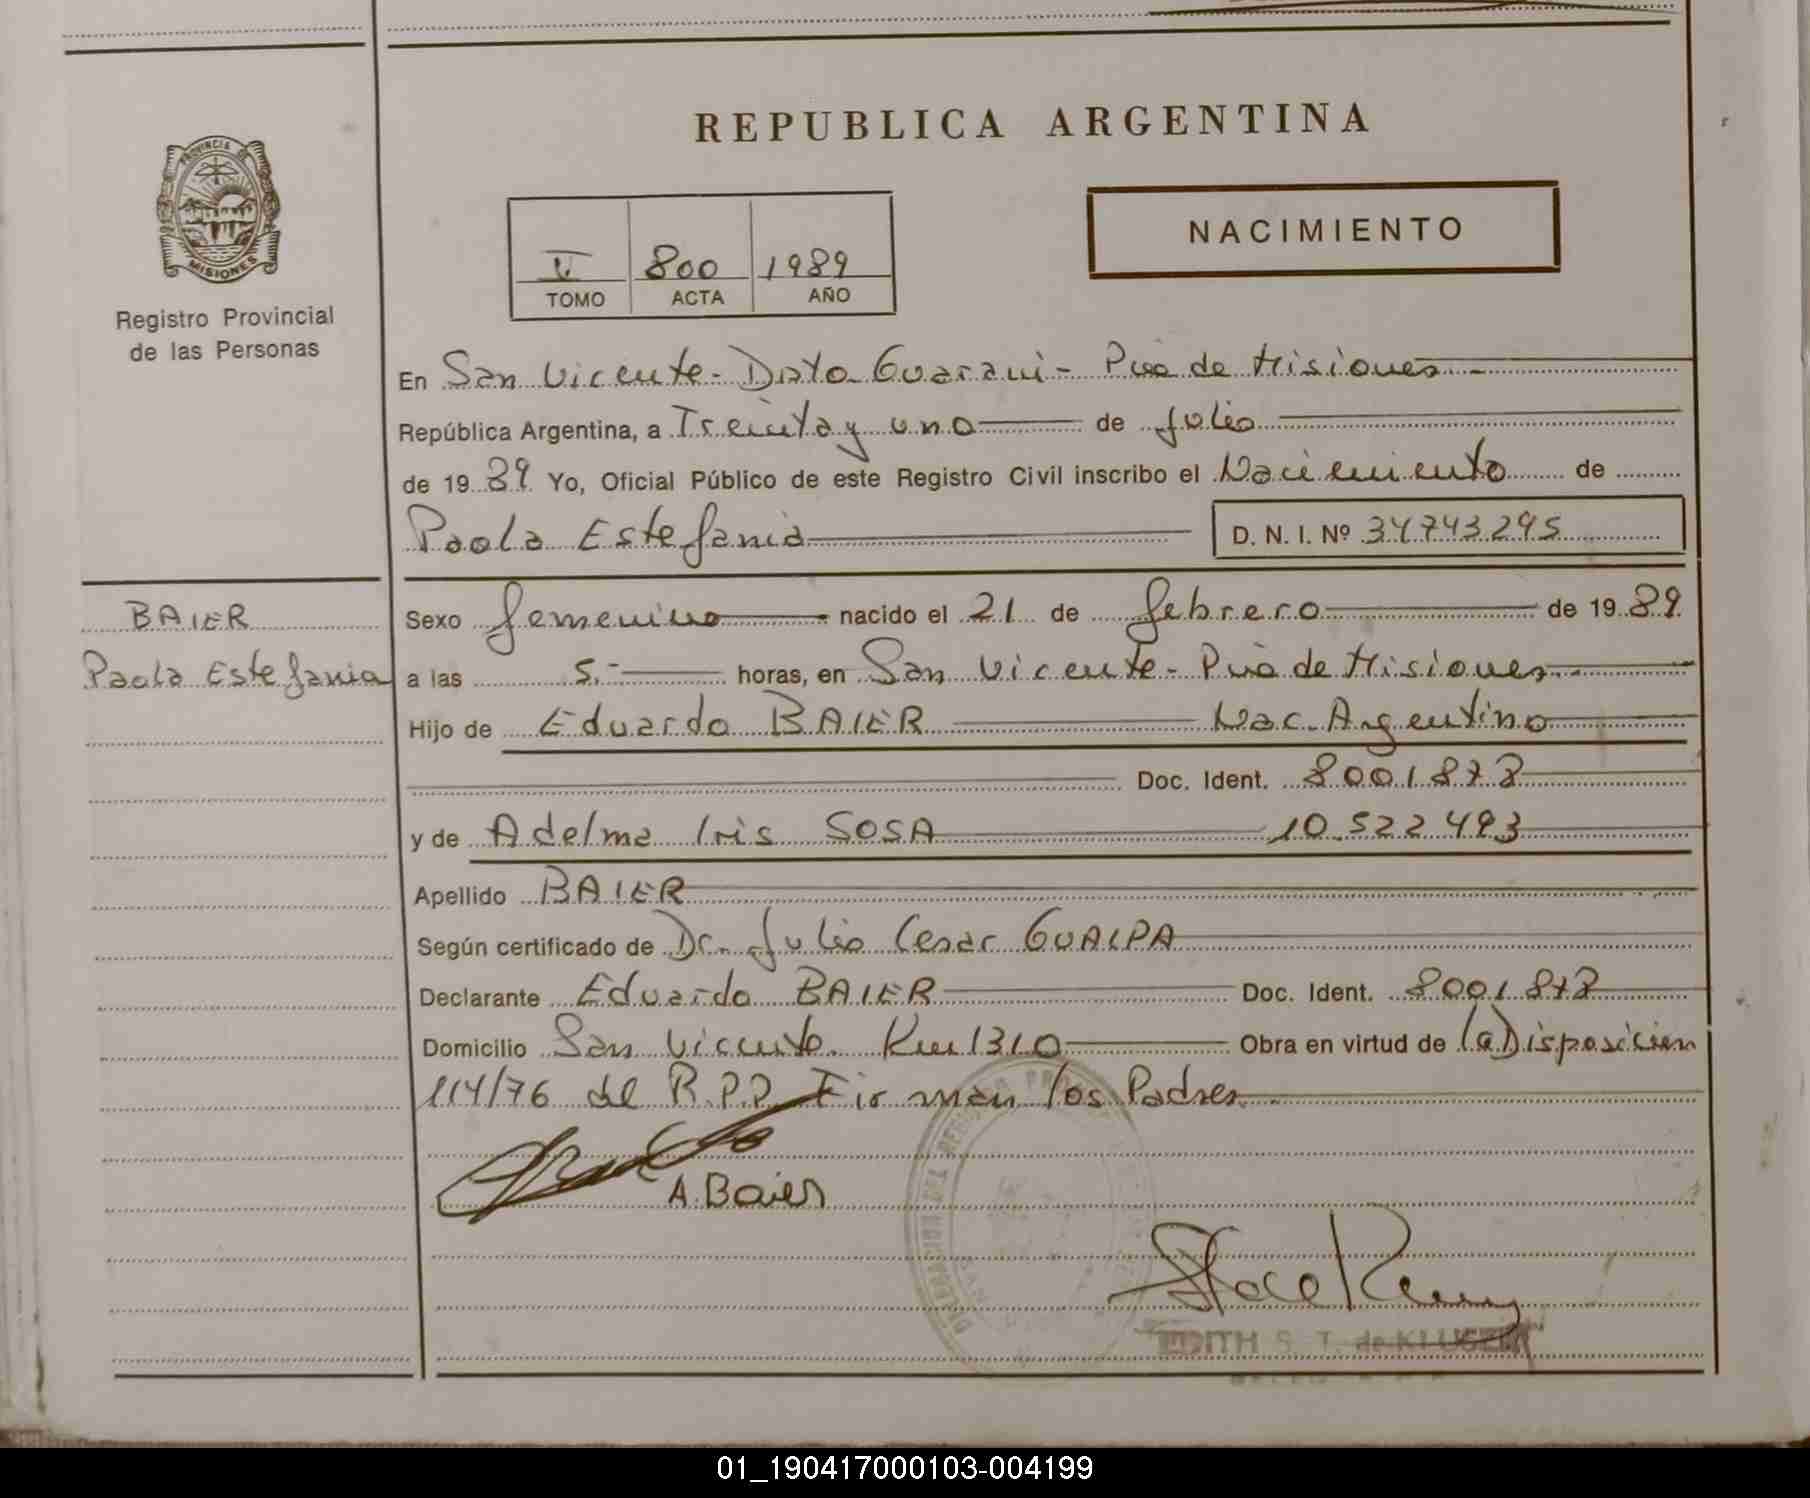 REPUBLICA ARGENTINA
PROVINCIA DE
MISIONES
Registro Provincial
de las Personas
NACIMIENTO
II 800 1989
TOMO ACTA AÑO
En San Vicente - Dpto Guarani - Pcia de Misiones -
República Argentina, a Treinta y uno de Julio
de 1989 Yo, Oficial Público de este Registro Civil inscribo el Nacimiento de
Paola Estefania D. N. I. Nº 34743295
BAIER
Paola Estefania
Sexo femenino nacido el 21 de febrero de 1989
a las 5.- horas, en San Vicente - Pcia de Misiones
Hijo de Eduardo BAIER Nac. Argentino
Doc. Ident. 8001878
y de Adelma Iris SOSA 10.522.493
Apellido BAIER
Según certificado de Dr. Julio Cesar GUALPA
Declarante Eduardo BAIER Doc. Ident. 8001878
Domicilio San Vicente. Km 1310 Obra en virtud de la Disposicion
114/76 del R.P.P. Firman los Padres
A. Baier
EDITH S. T. de
01_190417000103-004199